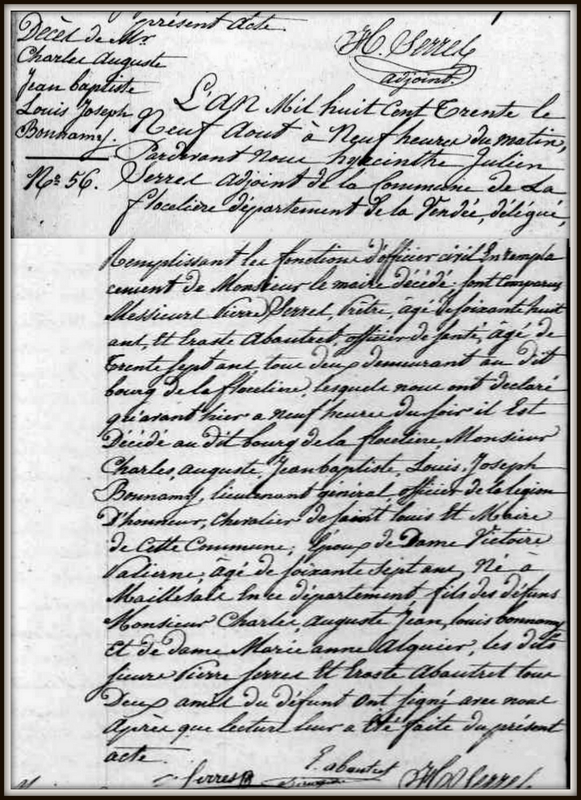 présent acte.
H. Serrel
adjoint.
Décès de Mr.
Charles Auguste
Jean baptiste
Louis Joseph
Bonnamy.
No. 56.
L'AN Mil huit Cent Trente le
Neuf Aout à Neuf heures du matin,
Pardevant Nous hyacinthe Julien
Serrel adjoint de la Commune de La
flocelière département de la Vendée, délégué,
Remplissant les fonctions d'officier civil En rempla
cement de Monsieur le maire décédé. sont Comparus
Messieurs Pierre Serrel, Prêtre, agé de soixante huit
ans, Et Eraste Abautret, officier de santé, agé de
Trente sept ans, tous deux demeurant au dit
bourg de la flocelière, lesquels nous ont déclaré
qu'avant hier a neuf heure du soir il Est
Décédé au dit bourg de la flocelière, Monsieur
Charles, Auguste Jean baptiste, Louis, Joseph
Bonnamy, lieutenant général, officier de la légion
D'honneur, Chevalier de saint Louis Et Maire
de Cette Commune, Epoux de Dame Victoire
agé de soixante Sept ans, Né à
Maillezais En ce département, fils des défuns
Monsieur Charles Auguste Jean, Louis bonnamy
Et de dame Marie anne Alquier, les dits
sieurs Pierre Serrel Et Eraste Abautret tous
Deux amis du défunt ont signé avec nous
Après que lecture leur a Eté faite du présent
acte.
Serrel
E. abautret
H. Serrel